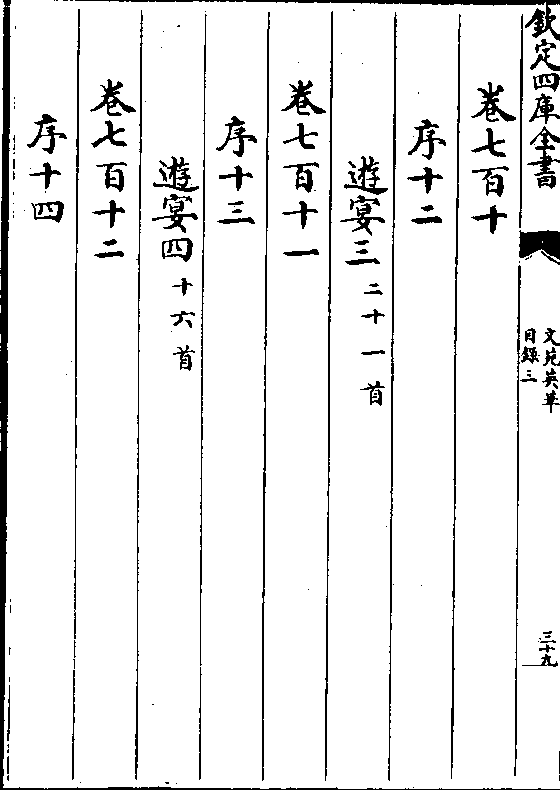 欽定四庫全書
文苑英華
目錄三
三十九
卷七百十
序十二
遊宴三二十一首
卷七百十一
序十三
遊宴四十六首
卷七百十二
序十四